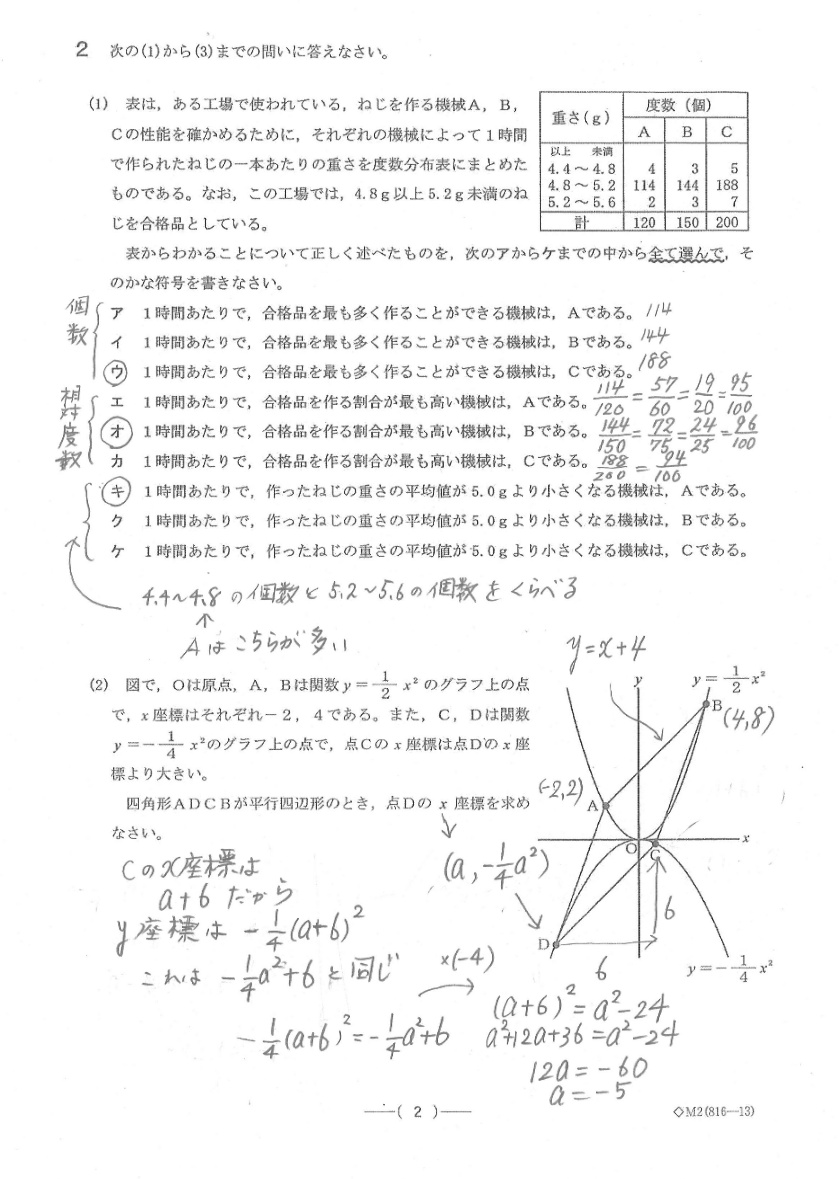 2 次の(1)から(3)までの問いに答えなさい。
(1) 表は，ある工場で使われている，ねじを作る機械A，B，
Cの性能を確かめるために，それぞれの機械によって1時間
で作られたねじの一本あたりの重さを度数分布表にまとめた
ものである。なお，この工場では，4.8g以上5.2g未満のね
じを合格品としている。
重さ(g) 度数（個）
A B C
以上 未満
4.4～4.8 4 3 5
4.8～5.2 114 144 188
5.2～5.6 2 3 7
計 120 150 200
表からわかることについて正しく述べたものを，次のアからケまでの中から全て選んで，そ
のかな符号を書きなさい。
個数
ア 1時間あたりで，合格品を最も多く作ることができる機械は，Aである。 114
イ 1時間あたりで，合格品を最も多く作ることができる機械は，Bである。 144
ウ 1時間あたりで，合格品を最も多く作ることができる機械は，Cである。 188
相対度数
エ 1時間あたりで，合格品を作る割合が最も高い機械は，Aである。 114/120 = 57/60 = 19/20 = 95/100
オ 1時間あたりで，合格品を作る割合が最も高い機械は，Bである。 144/150 = 72/75 = 24/25 = 96/100
カ 1時間あたりで，合格品を作る割合が最も高い機械は，Cである。 188/200 = 94/100
キ 1時間あたりで，作ったねじの重さの平均値が5.0gより小さくなる機械は，Aである。
ク 1時間あたりで，作ったねじの重さの平均値が5.0gより小さくなる機械は，Bである。
ケ 1時間あたりで，作ったねじの重さの平均値が5.0gより小さくなる機械は，Cである。
4.4～4.8の個数と5.2～5.6の個数をくらべる
↑
Aはこちらが多い
(2) 図で，Oは原点，A，Bは関数y=1/2 x²のグラフ上の点
で，x座標はそれぞれ－2，4である。また，C，Dは関数
y=－1/4 x²のグラフ上の点で，点Cのx座標は点Dのx座
標より大きい。
四角形ADCBが平行四辺形のとき，点Dのx座標を求め
なさい。
y=x+4
y
y=1/2 x²
B (4,8)
(-2,2) A
x
O
C
D
6
6
y=－1/4 x²
(a, -1/4a²)
Cのx座標は
a+6 だから
y座標は -1/4(a+6)²
これは -1/4a²+6 と同じ
×(-4)
-1/4(a+6)²=-1/4a²+6
(a+6)²=a²-24
a²+12a+36=a²-24
12a=-60
a=-5
―( 2 )―
◇M2(816―13)